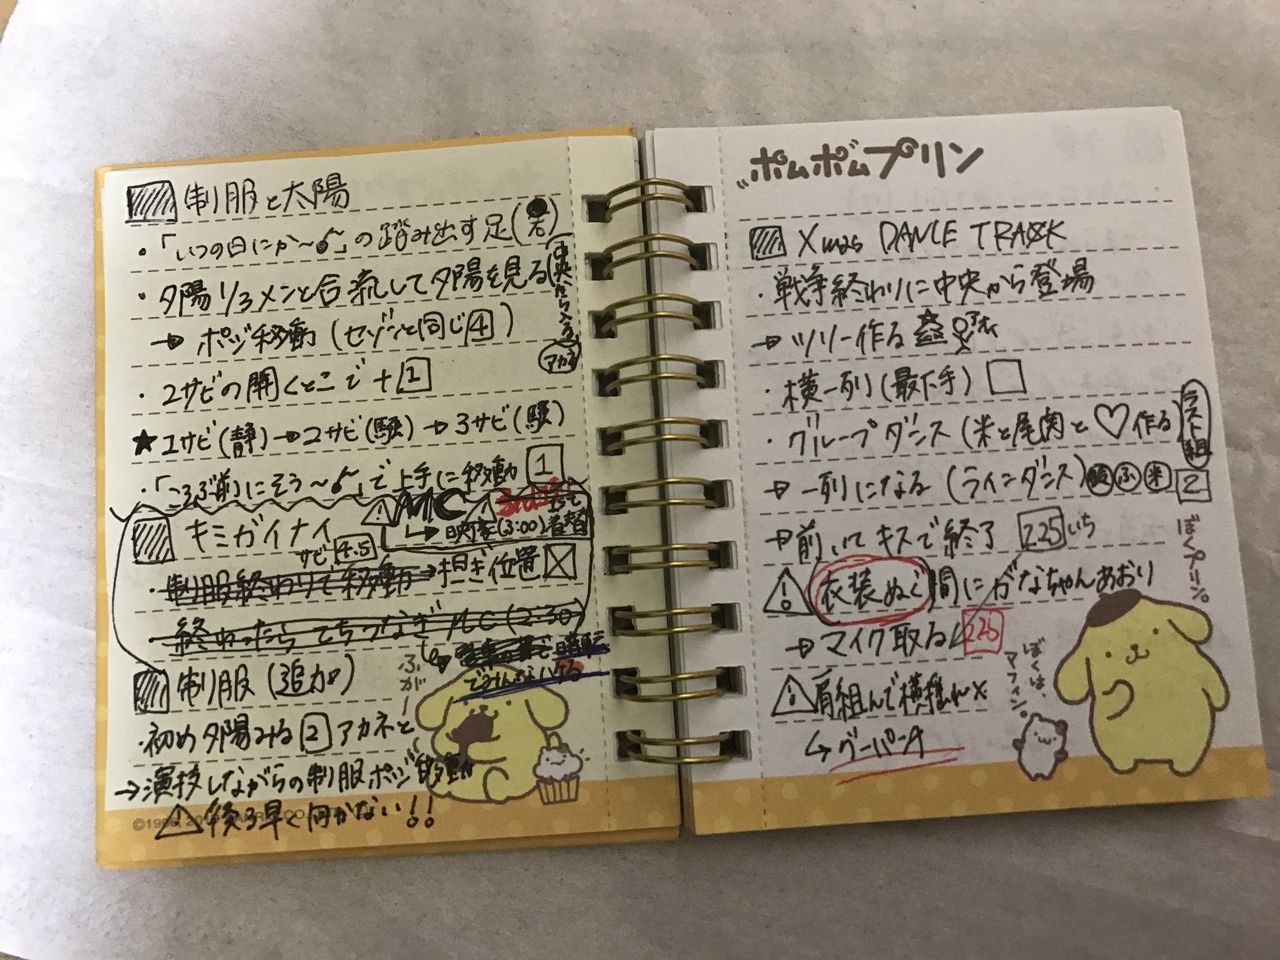 制服と太陽
・「いつの日にか〜♪」の踏み出す足(右)
・夕陽1/3メンと合流して夕陽を見る
中央から入る
アカネ
→ ポジ移動 (セゾンと同じ4)
・2サビの開くとこで+1
★1サビ(静)→2サビ(騒)→3サビ(騒)
・「ころぶ前にそう〜♪」で上手に移動 1
キミガイナイ
サビ4.5
MC
→ 映像(3:00)着替
・制服終わりで移動→担ぎ位置
・終わったらてちつなぎMC(2:30)
制服(追加)
・初め夕陽みる2アカネと
→演技しながらの制服ポジ移動
⚠後ろ早く向かない!!
ふがー
ポムポムプリン
Xmas DANCE TRACK
・戦争終わりに中央から登場
→ツリー作る
・横一列(最下手)
・グループダンス(米と尾関と♡作る)
ラスト1組
→一列になる(ラインダンス) ふ 米 2
→前いてキスで終了 2.25いち
⚠衣装ぬぐ間にがなちゃんあおり
→マイク取る 2.25
⚠肩組んで横揺れ×
↳グーパンチ
ぼくプリン。
ぼくは、マフィン。